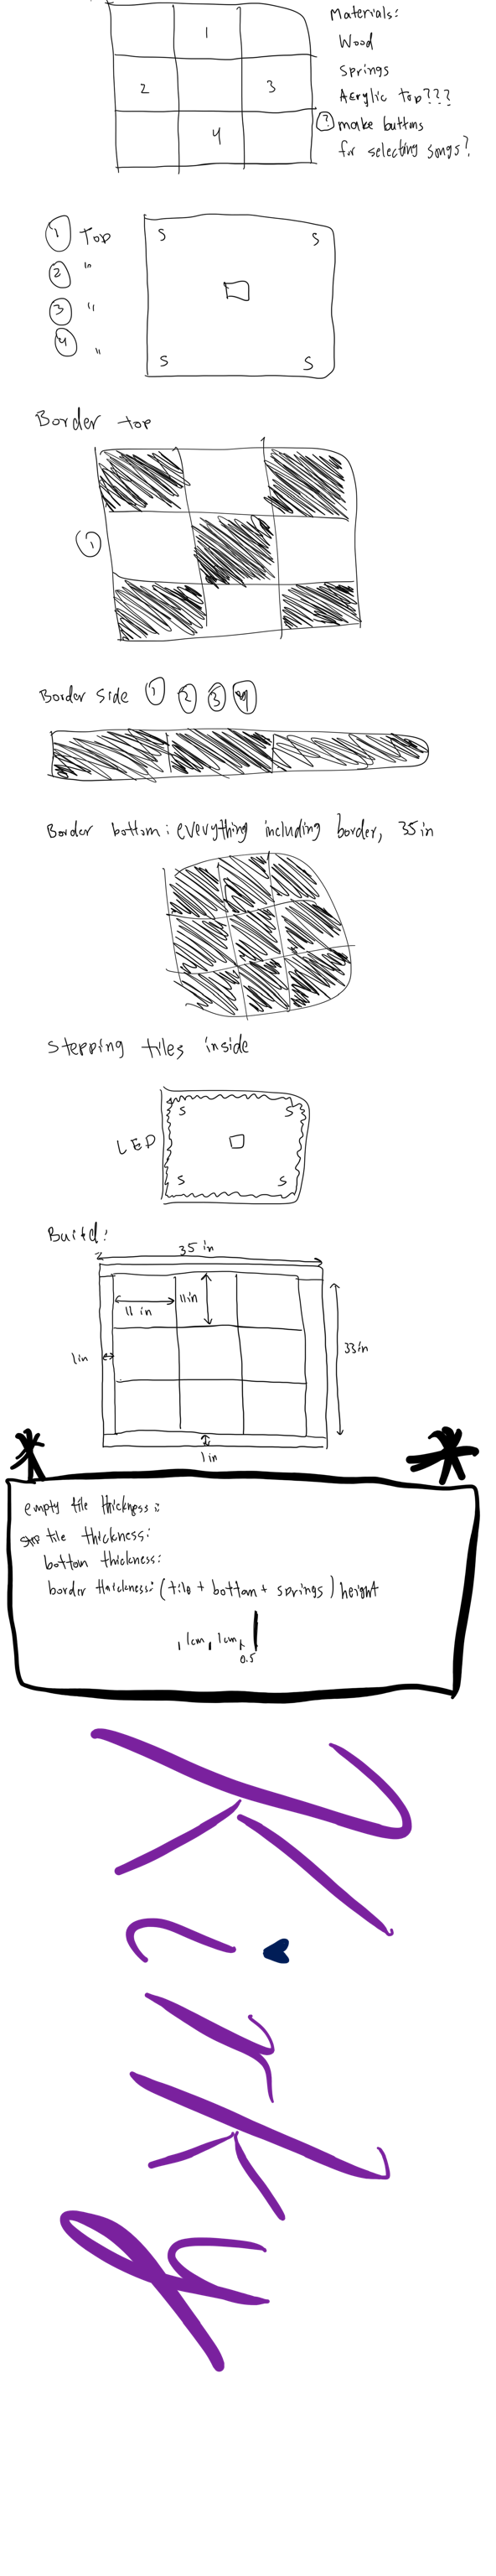 Materials:
Wood
Springs
Acrylic top???
? make buttons
for selecting songs?
1
2
3
4
1 Top
2 "
3 "
4 "
S S
S S
Border top
1
Border side 1 2 3 4
Border bottom: everything including border, 35 in
Stepping tiles inside
LED
S S
S S
Build:
35 in
11 in
11in
1in
33in
1 in
empty tile thickness:
step tile thickness:
bottom thickness:
border thickness: (tile + bottom + springs) height
1cm, 1cm,
0.5
Kirky